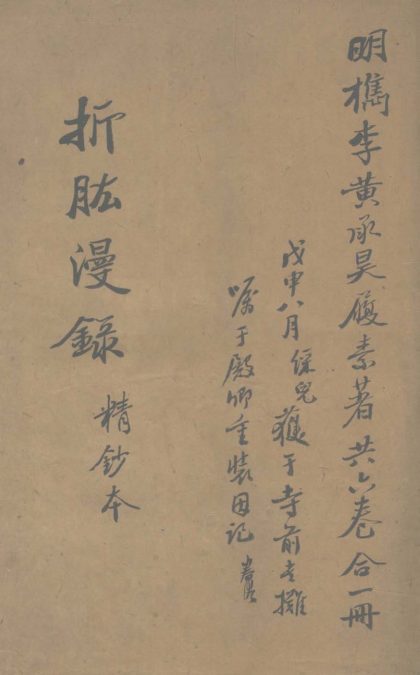 明檇李黄承昊履素著共六卷合一冊
戊申八月保兒獲于寺前書攤
嘱于殿卿重装因记
折肱漫錄
精鈔本